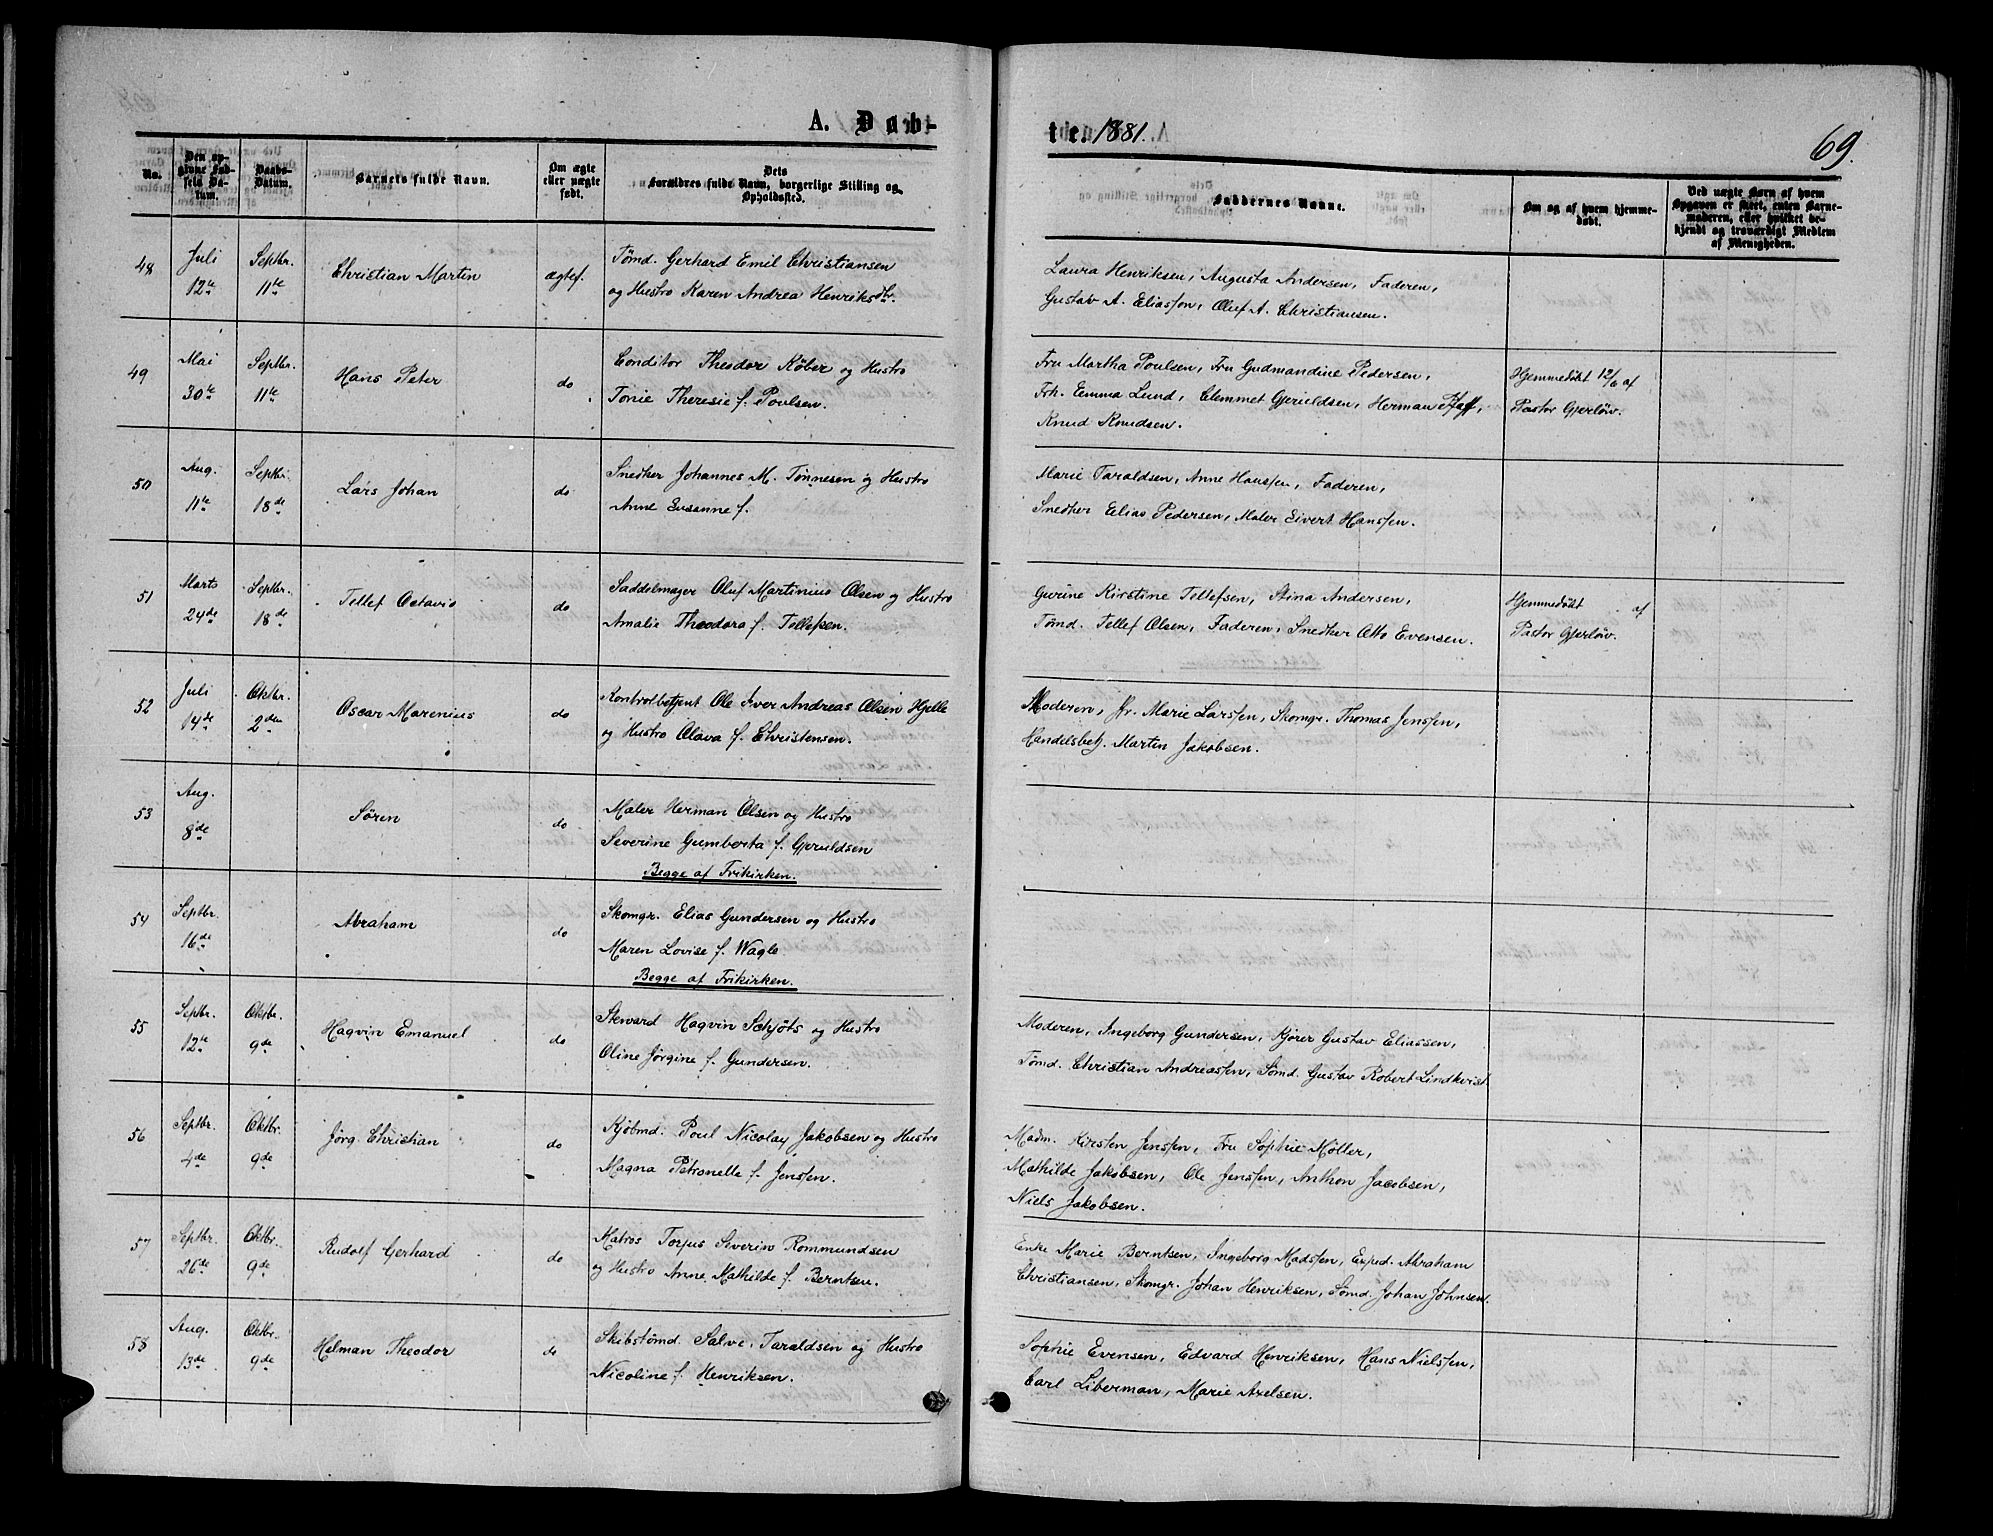 A. Døb-
te. 1881.
69.
No.
Den op-
givne Fød-
sels Da-
tum.
Daabs-
Datum.
Barnets fulde Navn.
Om ægte
eller uægte
født.
Dets
Forældres fulde Navn, borgerlige Stilling og
Opholdssted.
Faddernes Navne.
Om og af hvem hjemme-
døbt.
Ved uægte Børn af hvem
Opgaven er skeet, enten Barne-
moderen, eller hvilket be-
kjendt og troværdigt Medlem
af Menigheden.
48
Juli
12te
Septbr.
11te
Christian Martin
ægtef.
Tømd. Gerhard Emil Christiansen
og Hustro Karen Andrea Henriksdtr.
Laura Henriksen, Augusta Andersen, Faderen,
Gustav A. Eliassen, Oluf A. Christiansen.
49
Mai
30te
Septbr.
11te
Hans Peter
do
Conditor Theodor Køber og Hustro
Tonie Theresie f. Poulsen.
Fru Martha Poulsen, Fru Gudmandine Pedersen,
Frk. Emma Lund, Clemmet Gjeruldsen, Herman Pfaff,
Knud Knudsen.
Hjemmedøbt 12/6 af
Pastor Gjerløw.
50
Aug.
11te
Septbr.
18de
Lars Johan
do
Snedker Johannes M. Tønnesen og Hustro
Anne Susanne f.
Marie Taraldsen, Anne Hanssen, Faderen,
Snedker Elias Pedersen, Maler Eivert Hanssen.
51
Marts
24de
Septbr.
18de
Tellef Octavio
do
Saddelmager Oluf Martinius Olsen og Hustro
Amalie Theodora f. Tellefsen.
Gurine Kirstine Tellefsen, Stina Andersen,
Tømd. Tellef Olsen, Faderen, Snedker Otto Evensen.
Hjemmedøbt af
Pastor Gjerløw.
52
Juli
14de
Oktbr.
2den
Oscar Marenius
do
Kontrolbetjent Ole Iver Andreas Olsen Hjelle
og Hustro Olava f. Christensen.
Moderen, Jfr. Marie Larssen, Skomgr. Thomas Jenssen,
Handelsbetj. Martin Jakobsen.
53
Aug.
8de
Søren
do
Maler Herman Olsen og Hustro
Severine Gumberta f. Gjeruldsen
Begge af Frikirken.
54
Septbr.
16de
Abraham
do
Skomgr. Elias Gundersen og Hustro
Maren Lovise f. Wagle
Begge af Frikirken.
55
Septbr.
12te
Oktbr.
9de
Hagvin Emanuel
do
Steward Hagvin Schjöts og Hustro
Oline Jørgine f. Gundersen.
Moderen, Ingeborg Gundersen, Kjører Gustav Eliassen,
Tømd. Christian Andreassen, Sømd. Gustav Robert Lindkvist
56
Septbr.
4de
Oktbr.
9de
Jørg. Christian
do
Kjøbmd. Poul Nicolay Jakobsen og Hustro
Magna Petronelle f. Jenssen.
Madm. Kirsten Jenssen, Fru Sophie Møller,
Mathilde Jakobsen, Ole Jenssen, Anthon Jacobsen,
Niels Jakobsen.
57
Septbr.
26de
Oktbr.
9de
Rudolf Gerhard
do
Matros Torjus Severin Rommundsen
og Hustro Anne Mathilde f. Berntsen.
Enke Marie Berntsen, Ingeborg Madssen, Exped. Abraham
Christiansen, Skomgr. Johan Henriksen, Sømd. Johan Johnsen.
58
Aug.
13de
Oktbr.
9de
Helman Theodor
do
Skibstømd. Salve Taraldsen og Hustro
Nicoline f. Henriksen.
Sophie Evensen, Edvard Henriksen, Hans Nielssen,
Carl Liberman, Marie Axelsen.